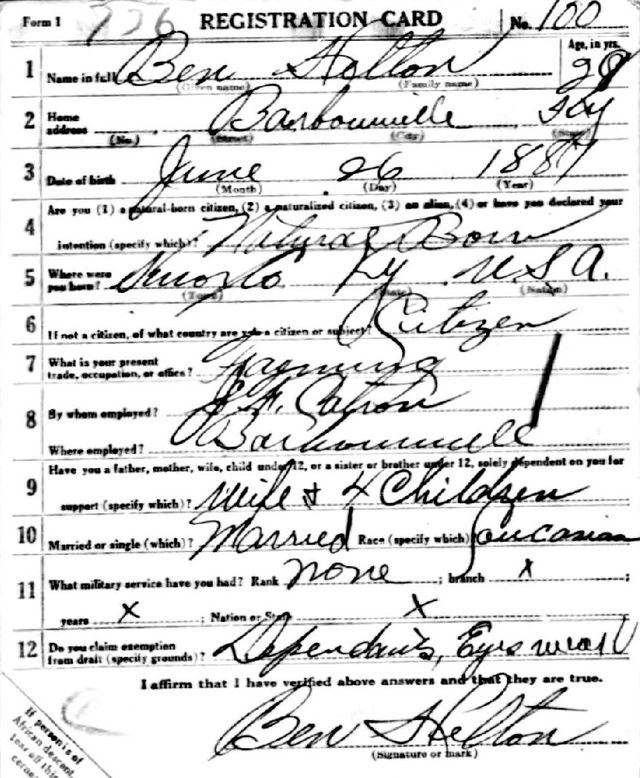 Form 1 776 REGISTRATION CARD No. 100
1 Name in full Ben Holton Age, in yrs.
(Given name) (Family name)
2 Home address Barbourville, Ky
(No.) (Street) (City) (State)
3 Date of birth June 26 1887
(Month) (Day) (Year)
4 Are you (1) a natural-born citizen, (2) a naturalized citizen, (3) an alien, (4) or have you declared your
intention (specify which)? Natural Born
5 Where were you born? Ky U.S.A.
(Town) (State) (Nation)
6 If not a citizen, of what country are you a citizen or subject? Citizen
7 What is your present trade, occupation, or office? Farming
8 By whom employed? J. F. Catron
Where employed? Barbourville
9 Have you a father, mother, wife, child under 12, or a sister or brother under 12, solely dependent on you for
support (specify which)? Wife & 4 Children
10 Married or single (which)? Married Race (specify which)? Caucasian
11 What military service have you had? Rank none; branch x;
years x; Nation or State x
12 Do you claim exemption from draft (specify grounds)? Dependants, Eyes weak
I affirm that I have verified above answers and that they are true.
Ben Helton
(Signature or mark)
If person is of
African descent,
tear off this
corner